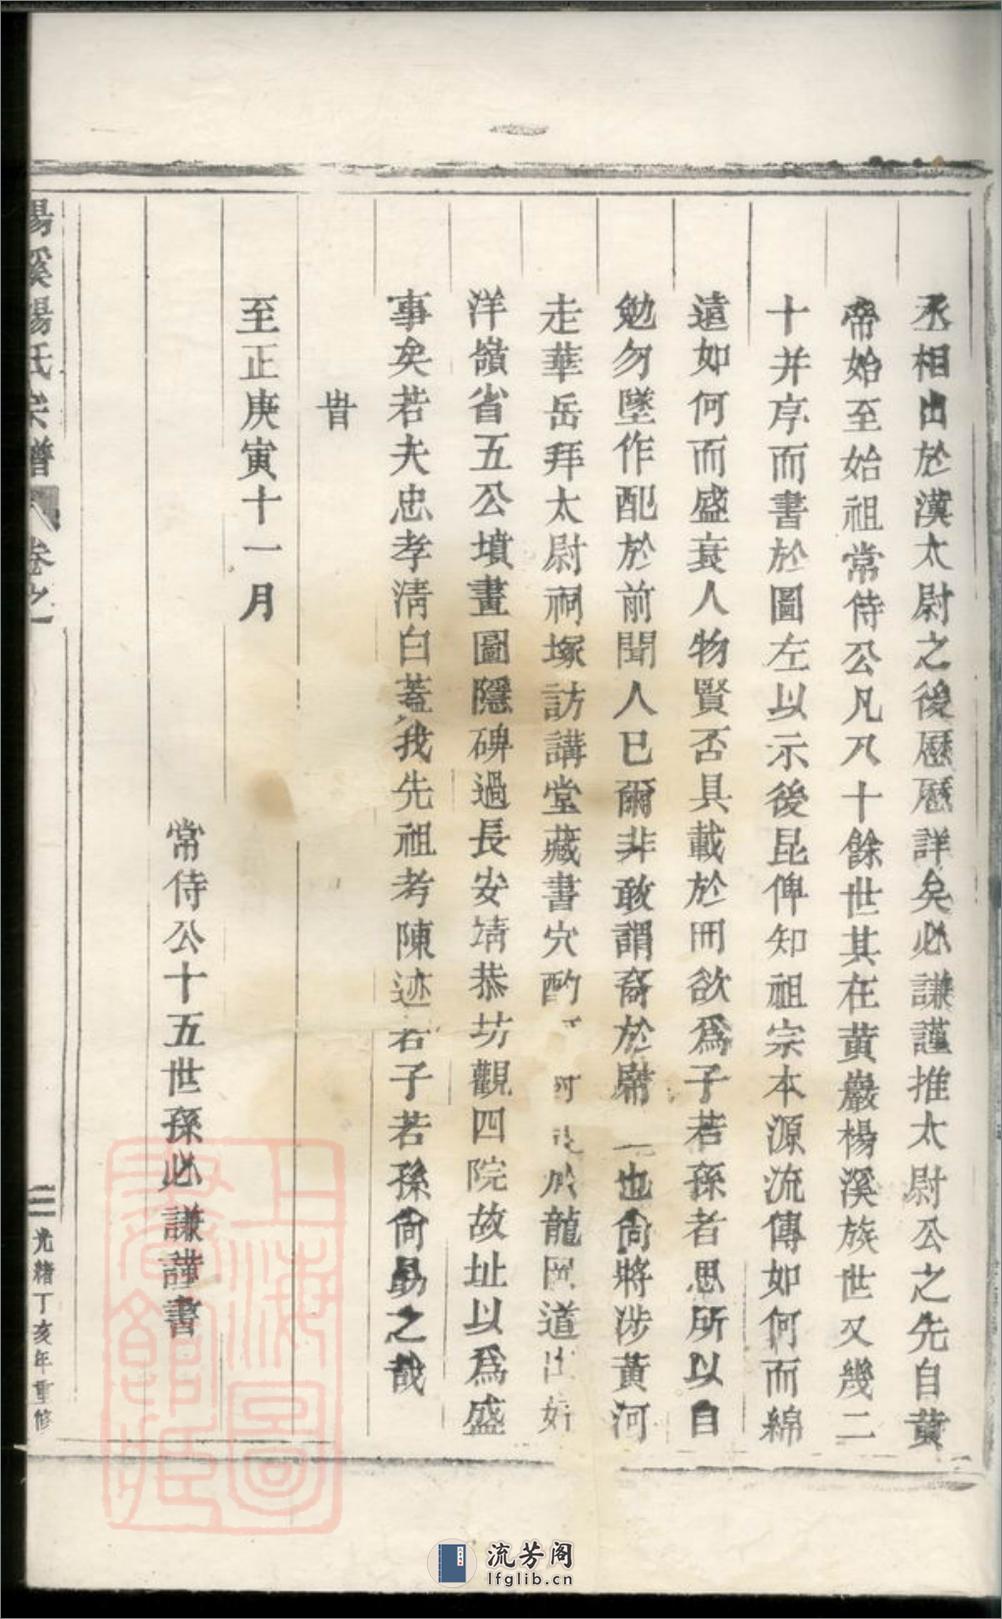 丞相出於漢太尉之後歷歷詳矣必謙謹推太尉公之先自黄
帝始至始祖常侍公凡八十餘世其在黄巖楊溪族世又幾二
十并序而書於圖左以示後昆俾知祖宗本源流傳如何而綿
遠如何而盛衰人物賢否具載於冊欲爲子若孫者思所以自
勉勿墜作配於前聞人已爾非敢謂裔於 也尙將涉黃河
走華岳拜太尉祠塚訪講堂藏書穴酌 龍 道出
洋嶺省五公墳畫圖隱碑過長安靖恭坊觀四院故址以爲盛
事矣若夫忠孝淸白葢我先祖考陳迹若子若孫尙勗之哉
旹
至正庚寅十一月
常侍公十五世孫必謙謹書
楊溪楊氏宗譜 卷之一
二
光緒丁亥年重修
上海圖書館藏
流芳阁
lfglib.cn